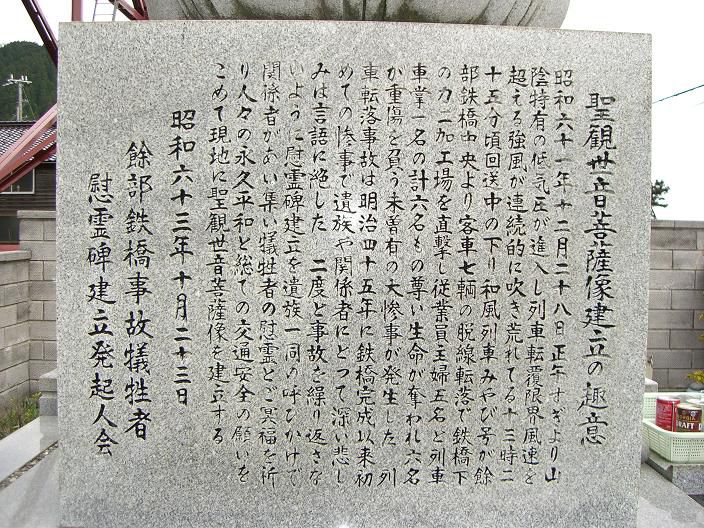 聖観世音菩薩像建立の趣意
昭和六十一年十二月二十八日正午すぎより山
陰特有の低気圧が進入し列車転覆限界風速を
超える強風が連続的に吹き荒れてる十三時二
十五分頃回送中の下り和風列車みやび号が餘
部鉄橋中央より客車七輌の脱線転落で鉄橋下
のカニ加工場を直撃し従業員主婦五名と列車
車掌一名の計六名もの尊い生命が奪われ六名
が重傷を負う未曽有の大惨事が発生した 列
車転落事故は明治四十五年に鉄橋完成以来初
めての惨事で遺族や関係者にとって深い悲し
みは言語に絶した 二度と事故を繰り返さな
いように慰霊碑建立を遺族一同の呼びかけで
関係者があい集い犠牲者の慰霊とご冥福を祈
り人々の永久平和と総ての交通安全の願いを
こめて現地に聖観世音菩薩像を建立する
昭和六十三年十月二十三日
餘部鉄橋事故犠牲者
慰霊碑建立発起人会
DRAFT